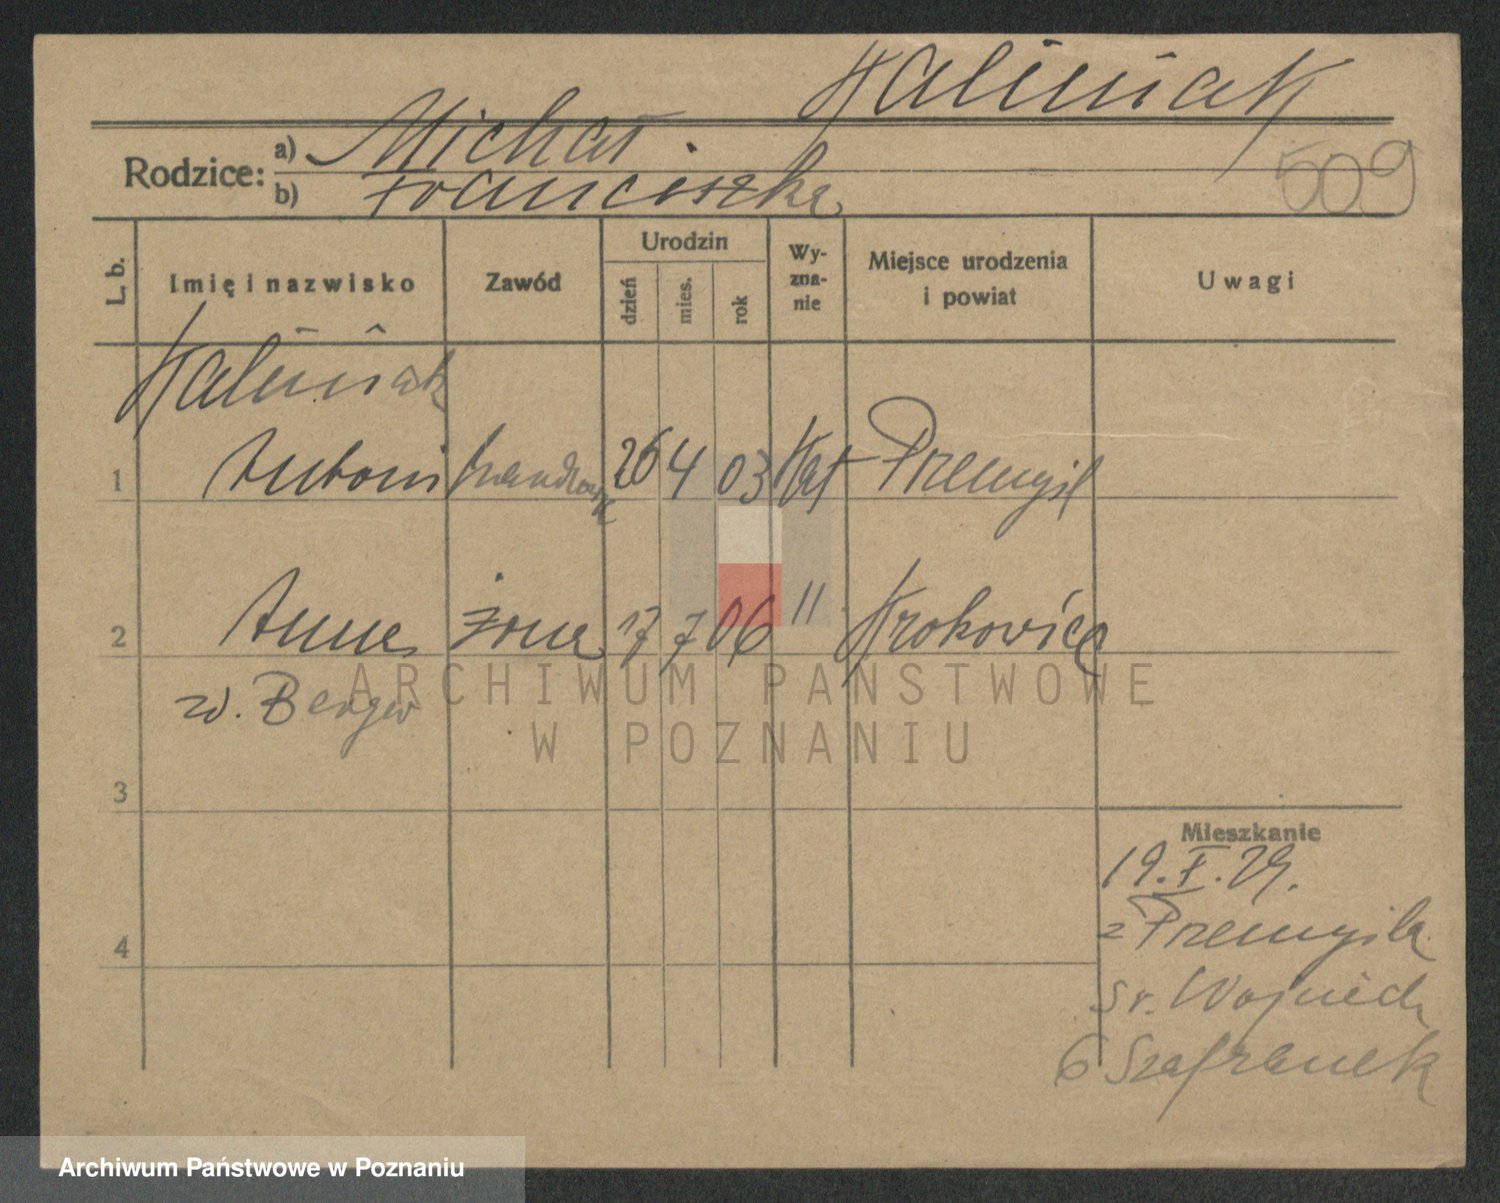 Kaliniak
509
Rodzice:
a) Michał
b) Franciszka
L. b.
Imię i nazwisko
Zawód
Urodzin
dzień
mies.
rok
Wy-
zna-
nie
Miejsce urodzenia
i powiat
Uwagi
Kaliniak
1 Antoni handlowiec 26 4 03 Kat Przemyśl
2 Anna żona 17 7 06 11 Krokowice
z d. Berger
3
4
Mieszkanie
19.X.29.
z Przemyśla
Św. Wojciech
6 Szafranek
ARCHIWUM PAŃSTWOWE
W POZNANIU
Archiwum Państwowe w Poznaniu